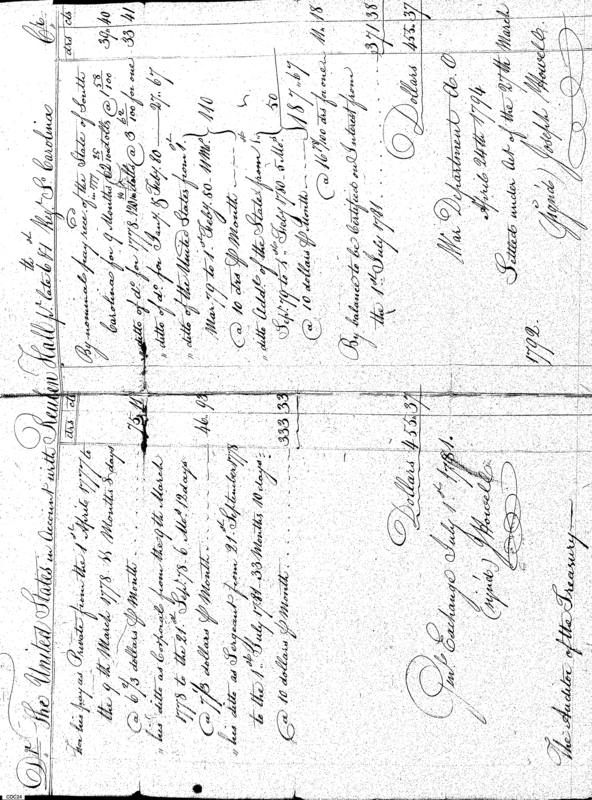 Dr. The United States in Account with Reuben Hall pr. late 6th & 1st Regt. So. Carolina Cr.
drs cts
For his pay as Private from the 1st April 1777 to
the 9th March 1778 11 Months 8 days
@ 6 2/3 dollars pr Month . . . 75.11
" his ditto as Corporal from the 9th March
1778 to the 21st Sepr. 78. 6 Ms. 12 days
@ 7 1/3 dollars pr Month . . . . 46.93
" his ditto as Sergeant from 21st September 1778
to the 1st July 1781 33 Months 10 days
@ 10 dollars pr Month . . . . 333.33
Dollars 455.37
Pay Exchange July 1st 1781.
(sign'd) J Howell
The Auditor of the Treasury
drs cts
By nominal pay recd. of the State of South
Carolina for 9 Months in 1777
34.40
ditto of do. for 1778 @ 3 62/100 for one 33 41
" ditto of do. for Jany. & Feby. 80 27..67
" ditto of the United States from
Mar. 79 to 1st Feby. 80 - 11 Mos.
@ 10 drs pr Month 110
" ditto Addl. of the State from
Sepr. 79 to 1st Feby. 1780. 5 Mos.
@ 10 dollars pr Month 50
187..67
@ 16 /100 drs for one 11. 18
By balance to be Certified on Interest from
the 1st July 1781 . . . . 371 38
Dollars 455.37
War Department A. O
April 24th 1794
Settled under Act of the 27th March
1792.
Sign'd Joseph Howell
CDC24